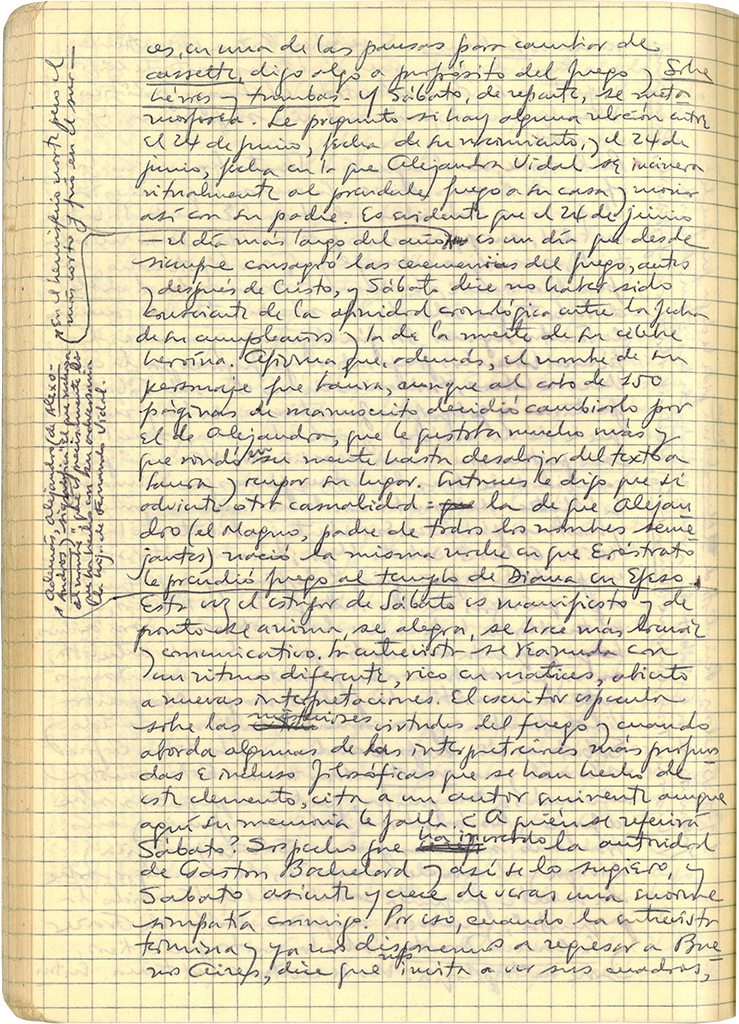 es, en una de las pausas para cambiar de
cassette, digo algo a propósito del fuego y Sobre
héroes y tumbas. Y Sábato, de repente, se meta-
morfosea. Le pregunto si hay alguna relación entre
el 24 de junio, fecha de su nacimiento, y el 24 de
junio, fecha en la que Alejandra Vidal se incinera
ritualmente al prenderle fuego a su casa y morir
así con su padre. Es evidente que el 24 de junio
—el día más largo del año— es un día que desde
siempre consagró las ceremonias del fuego, antes
y después de Cristo, y Sábato dice no haber sido
consciente de la afinidad cronológica entre la fecha
de su cumpleaños y la de la muerte de su célebre
heroína. Afirma que, además, el nombre de su
personaje fue Laura, aunque al cabo de 250
páginas de manuscrito decidió cambiarlo por
el de Alejandra, que le gustaba mucho más y
que rondó su mente hasta desalojar del texto a
Laura y ocupar su lugar. Entonces le digo que si
advierte otra casualidad: la de que Alejan-
dro (el Magno, padre de todos los nombres seme-
jantes) nació la misma noche en que Eróstrato
le prendió fuego al templo de Diana en Efeso.
Esta vez el estupor de Sábato es manifiesto y de
pronto se anima, se alegra, se hace más locuaz
y comunicativo. La entrevista se reanuda con
un ritmo diferente, rico en matices, abierto
a nuevas interpretaciones. El escritor especula
sobre las misteriosas virtudes del fuego y cuando
aborda algunas de las interpretaciones más profun-
das e incluso filosóficas que se han hecho de
este elemento, cita a un autor aunque
aquí su memoria le falla. ¿A quién se referirá
Sábato? Sospecho que ha invocado la autoridad
de Gaston Bachelard y así se lo sugiero, y
Sabato asiente y crece de veras una enorme
simpatía conmigo. Por eso, cuando la entrevista
termina y ya nos disponemos a regresar a Bue-
nos Aires, dice que nos invita a ver sus cuadros,
En el hemisferio norte, pero el
más corto y frío en el sur—
Además, Alejandra (de Alexo-
Andros) significa: el que rechaza
al hombre, y eso es precisamente lo
que ha hecho en su adversaria
la hija de Fernando Vidal.